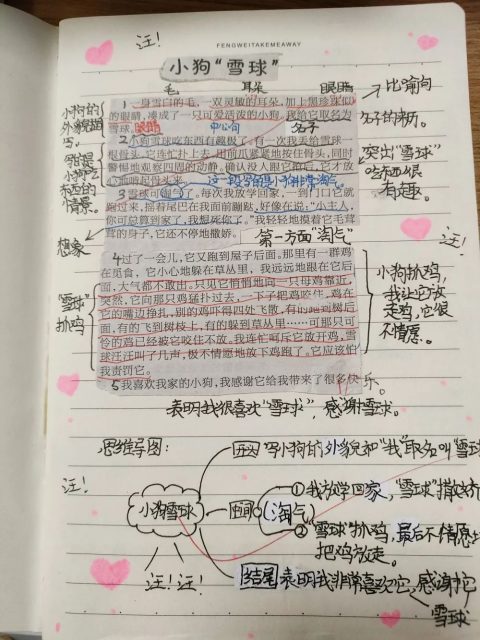 汪!
FENGWEITAKEMEAWAY
小狗"雪球"
毛 耳朵 眼睛
1 一身雪白的毛、一双灵敏的耳朵,加上黑珍珠似
的眼睛,凑成了一只可爱活泼的小狗。我给它取名为
雪球。
眼睛 中心句 名字
2 小狗雪球吃东西有趣极了。有一次我丢给雪球一
根骨头,它连忙扑上去,用前爪紧紧地按住骨头,同时
警惕地观察四周的动静。确认没人跟它抢后,它才放
心地啃起骨头来。
这一段写的是小狗非常淘气。
3 雪球可淘气了。每次我放学回家,一到门口它就
跑过来,摇着尾巴在我面前蹦跶,好像在说:"小主人,
你可总算到家了,我想死你了。"我轻轻地摸着它毛茸
茸的身子,它还不停地撒娇。
第一方面"淘气"
4 过了一会儿,它又跑到屋子后面。那里有一群鸡
在觅食,它小心地躲在草丛里,我远远地跟在它后
面,大气都不敢出。只见它悄悄地向一只母鸡靠近,
突然,它向那只鸡猛扑过去,一下子把鸡咬住。鸡在
它的嘴边挣扎,别的鸡吓得四处飞散,有的跑到树后
面,有的飞到树枝上,有的躲到草丛里……可那只可
怜的鸡已经被它咬住不放。我连忙呵斥它放开鸡,雪
球汪汪叫了几声,极不情愿地放下鸡跑了。它应该怕
我责罚它。
5 我喜欢我家的小狗,我感谢它给我带来了很多快
乐。
小狗的
外貌描
写。
吃东
西的
情景。
想象
"雪球"
抓鸡
比喻句
名字的来历。
突出"雪球"
吃东西很
有趣。
汪!
小狗抓鸡,
我让它放
走鸡,它很
不情愿。
表明我很喜欢"雪球",感谢雪球。
思维导图:
汪!
小狗雪球
汪! 汪!
开头 写小狗的外貌和"我"取名叫"雪球
中间 (淘气)
①我放学回家,"雪球"撒娇
②"雪球"抓鸡,最后不情愿地
把鸡放走。
结尾 表明我非常喜欢它,感谢它
雪球